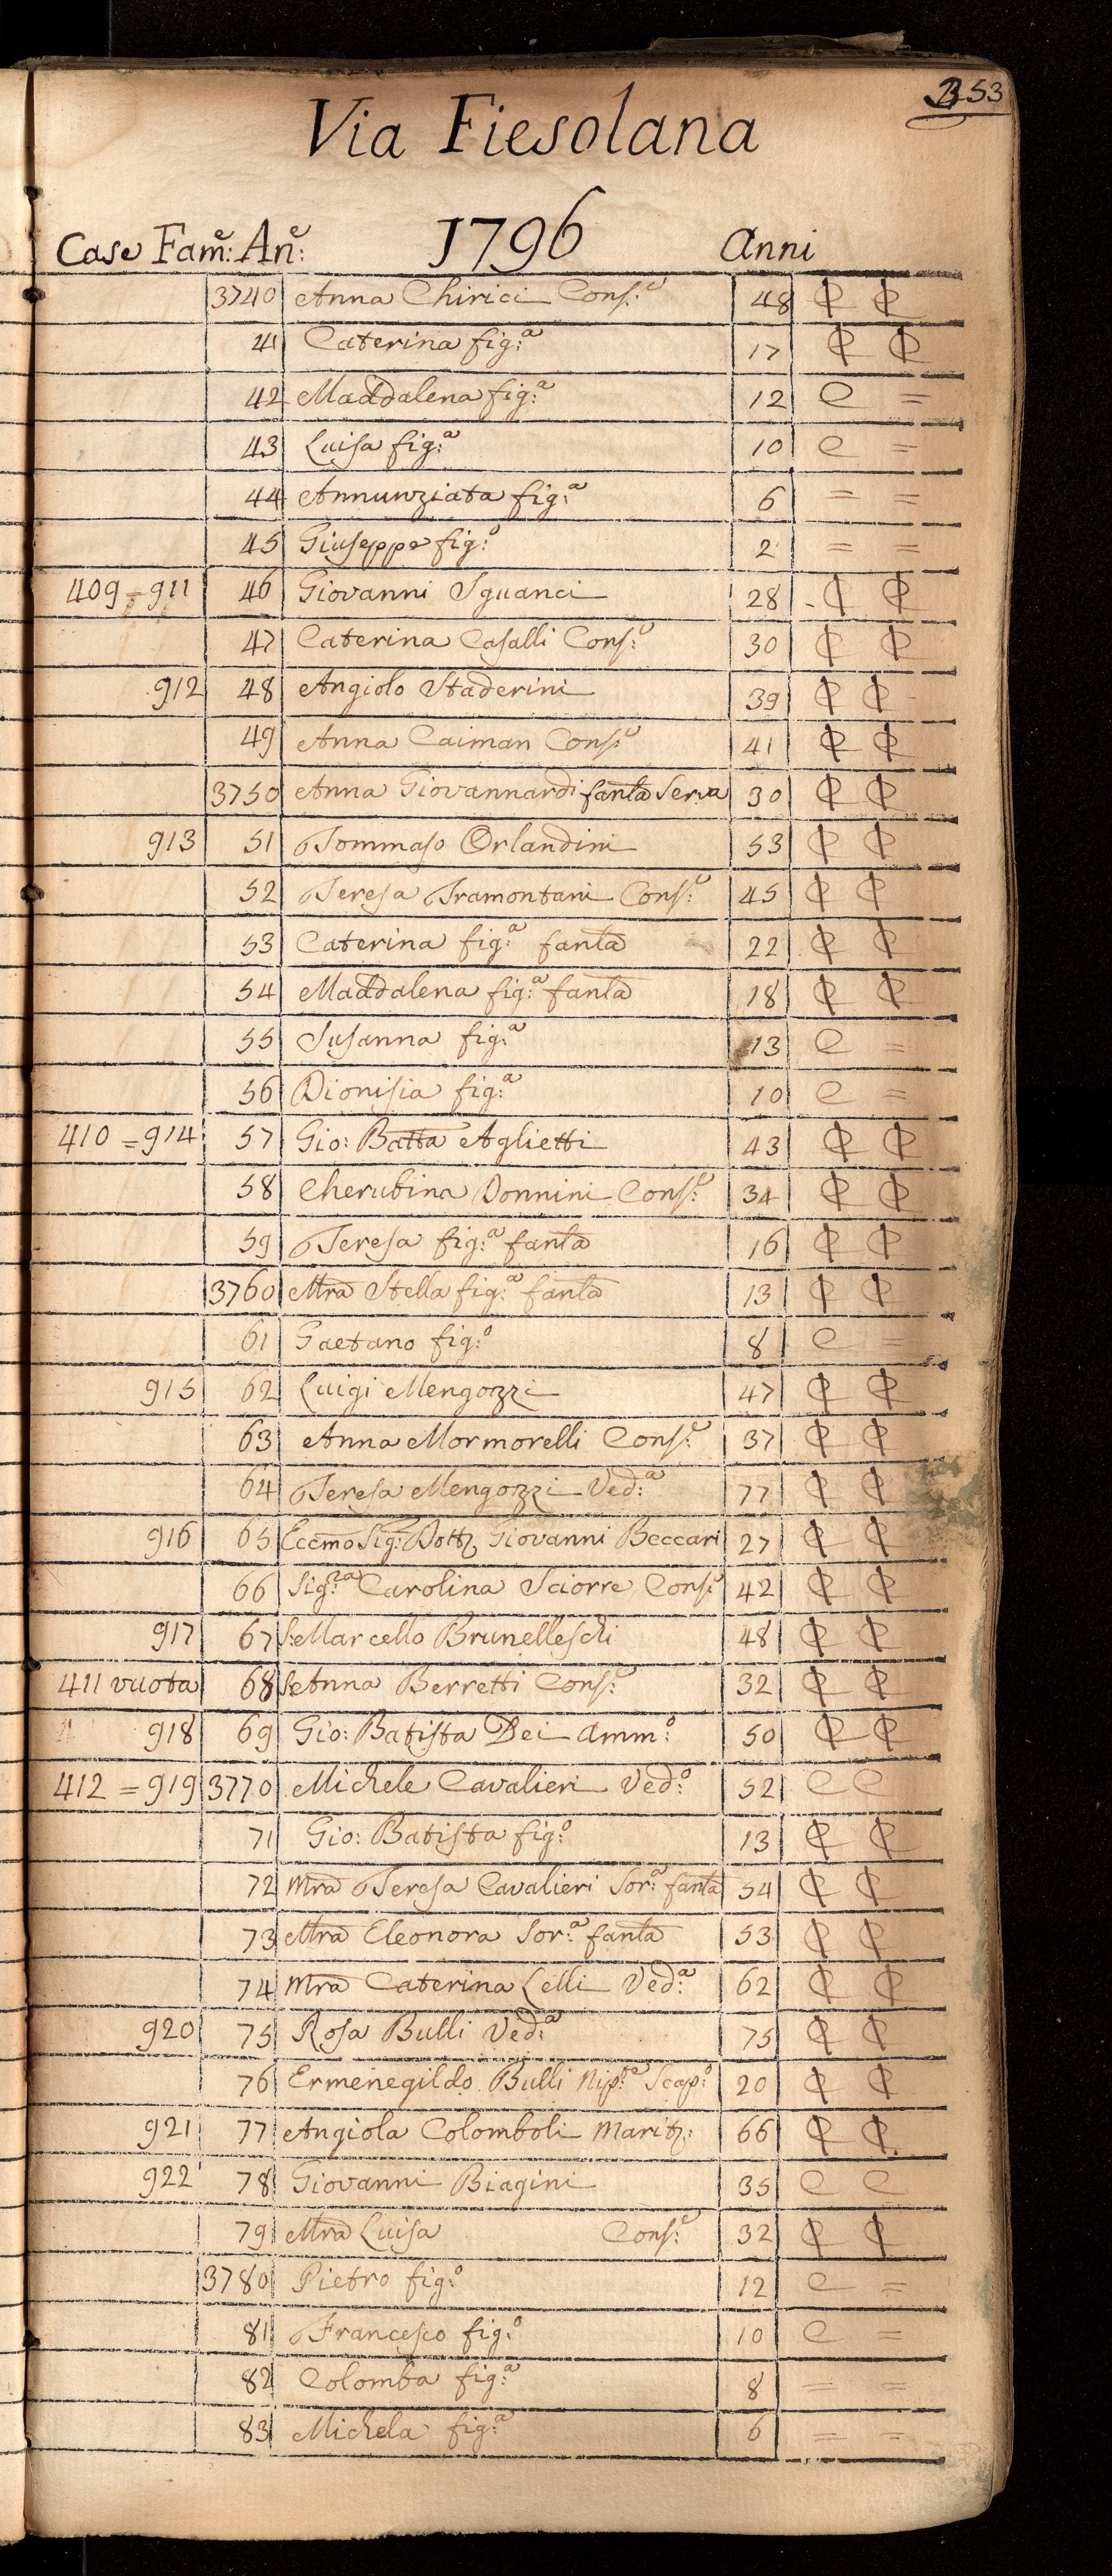 353
Via Fiesolana
1796
Case Fam.e: An.e: Anni
3740 Anna Chirici Cons.e 48 ₵ ₵
41 Caterina fig.a 17 ₵ ₵
42 Maddalena fig.a 12 C =
43 Luisa fig.a 10 C =
44 Annunziata fig.a 6 = =
45 Giuseppe fig.o 2 = =
409 = 911 46 Giovanni Sguanci 28 ₵ ₵
47 Caterina Casalli Cons.e 30 ₵ ₵
912 48 Angiolo Staderini 39 ₵ ₵
49 Anna Caiman Cons.e 41 ₵ ₵
3750 Anna Giovannardi fanla Serva 30 ₵ ₵
913 51 Tommaso Orlandini 53 ₵ ₵
52 Teresa Tramontani Cons.e 45 ₵ ₵
53 Caterina fig.a fanla 22 ₵ ₵
54 Maddalena fig.a fanla 18 ₵ ₵
55 Susanna fig.a 13 C =
56 Dionisia fig.a 10 C =
410 = 914 57 Gio: Batta Aglietti 43 ₵ ₵
58 Cherubina Donnini Cons.e 34 ₵ ₵
59 Teresa fig.a fanla 16 ₵ ₵
3760 Mra Stella fig.a fanla 13 ₵ ₵
61 Gaetano fig.o 8 C =
915 62 Luigi Mengozzi 47 ₵ ₵
63 Anna Mormorelli Cons.e 37 ₵ ₵
64 Teresa Mengozzi Ved.a 77 ₵ ₵
916 65 Eccmo Sig: Dott. Giovanni Beccari 27 ₵ ₵
66 Sig.ra Carolina Sciorre Cons.e 42 ₵ ₵
917 67 S: Marcello Brunelleschi 48 ₵ ₵
411 vuota 68 S: Anna Berretti Cons.e 32 ₵ ₵
918 69 Gio: Batista Dei Amm.o 50 ₵ ₵
412 = 919 3770 Michele Cavalieri Ved.o 52 C C
71 Gio: Batista fig.o 13 ₵ ₵
72 Mra Teresa Cavalieri Sor.a fanla 54 ₵ ₵
73 Mra Eleonora Sor.a fanla 53 ₵ ₵
74 Mra Caterina Lelli Ved.a 62 ₵ ₵
920 75 Rosa Bulli Ved.a 75 ₵ ₵
76 Ermenegildo Bulli Nip.te Scap.o 20 ₵ ₵
921 77 Angiola Colomboli Marit: 66 ₵ ₵
922 78 Giovanni Biagini 35 C C
79 Mra Luisa Cons.e 32 ₵ ₵
3780 Pietro fig.o 12 C =
81 Francesco fig.o 10 C =
82 Colomba fig.a 8 = =
83 Michela fig.a 6 = =